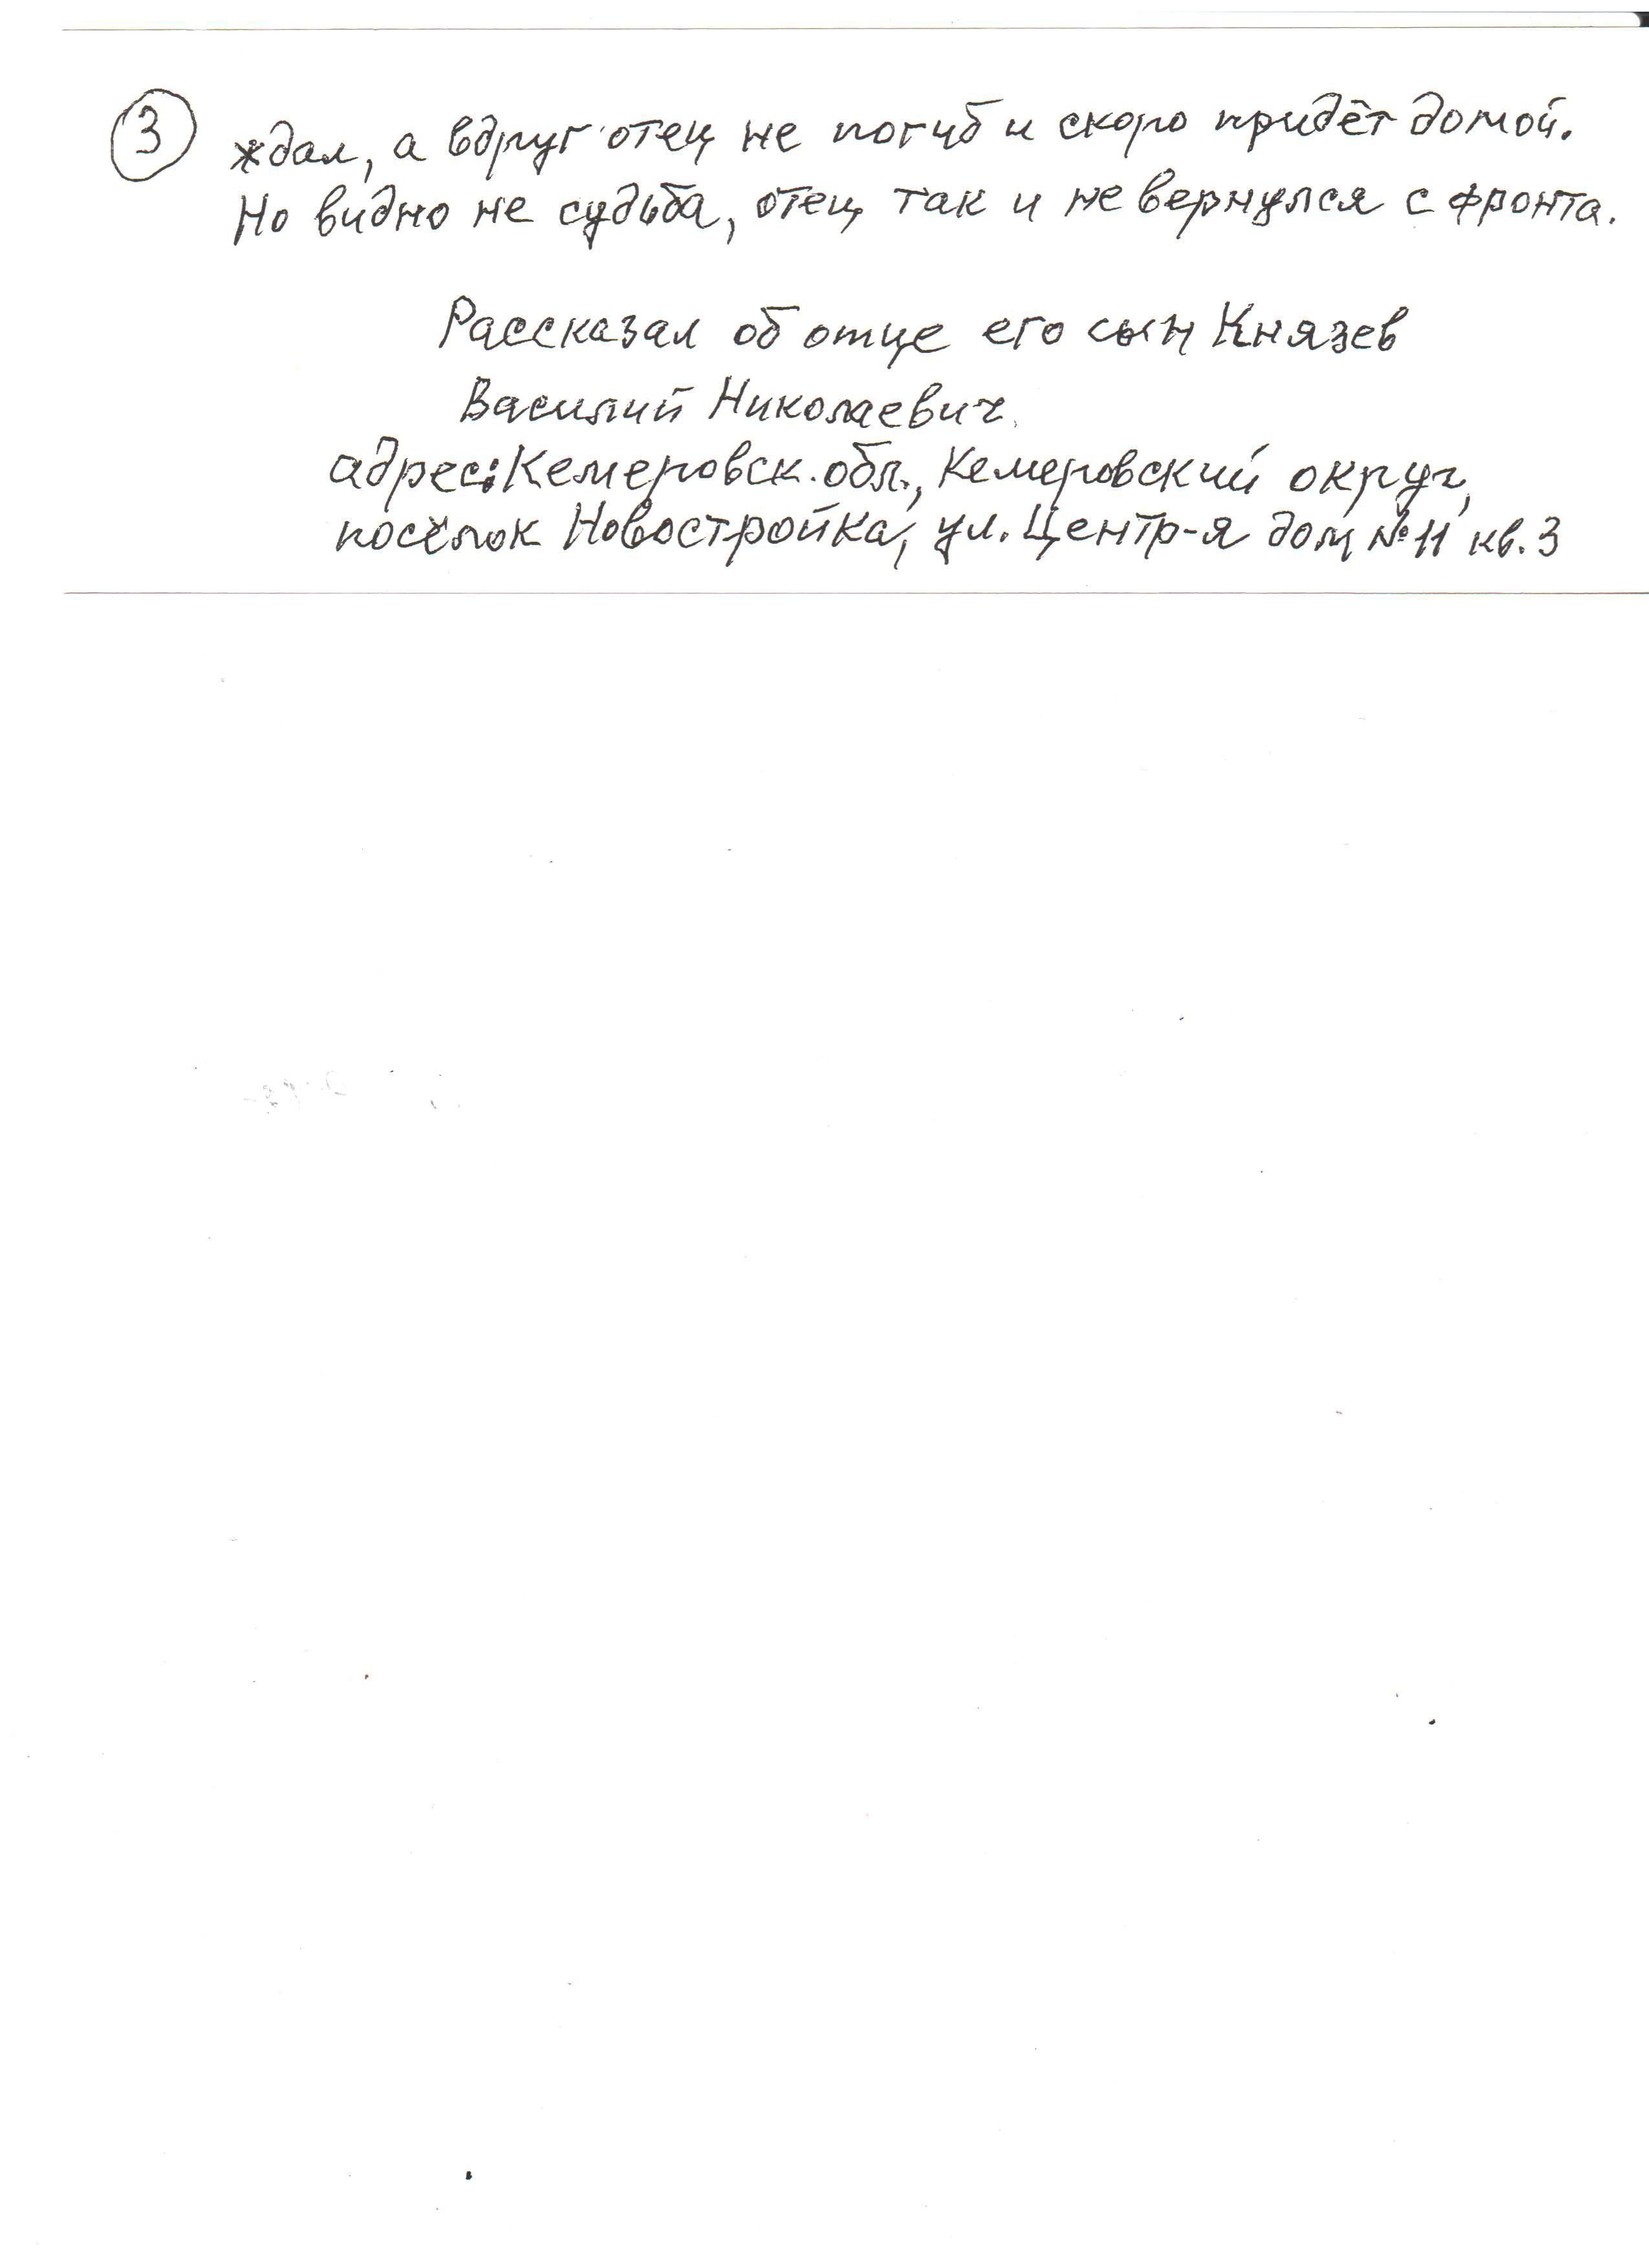 3 ждал, а вдруг отец не погиб и скоро придёт домой.
Но видно не судьба, отец так и не вернулся с фронта.
Рассказал об отце его сын Князев
Василий Николаевич.
адрес: Кемеровск. обл., Кемеровский округ,
посёлок Новостройка, ул. Центр-я дом №11 кв. 3